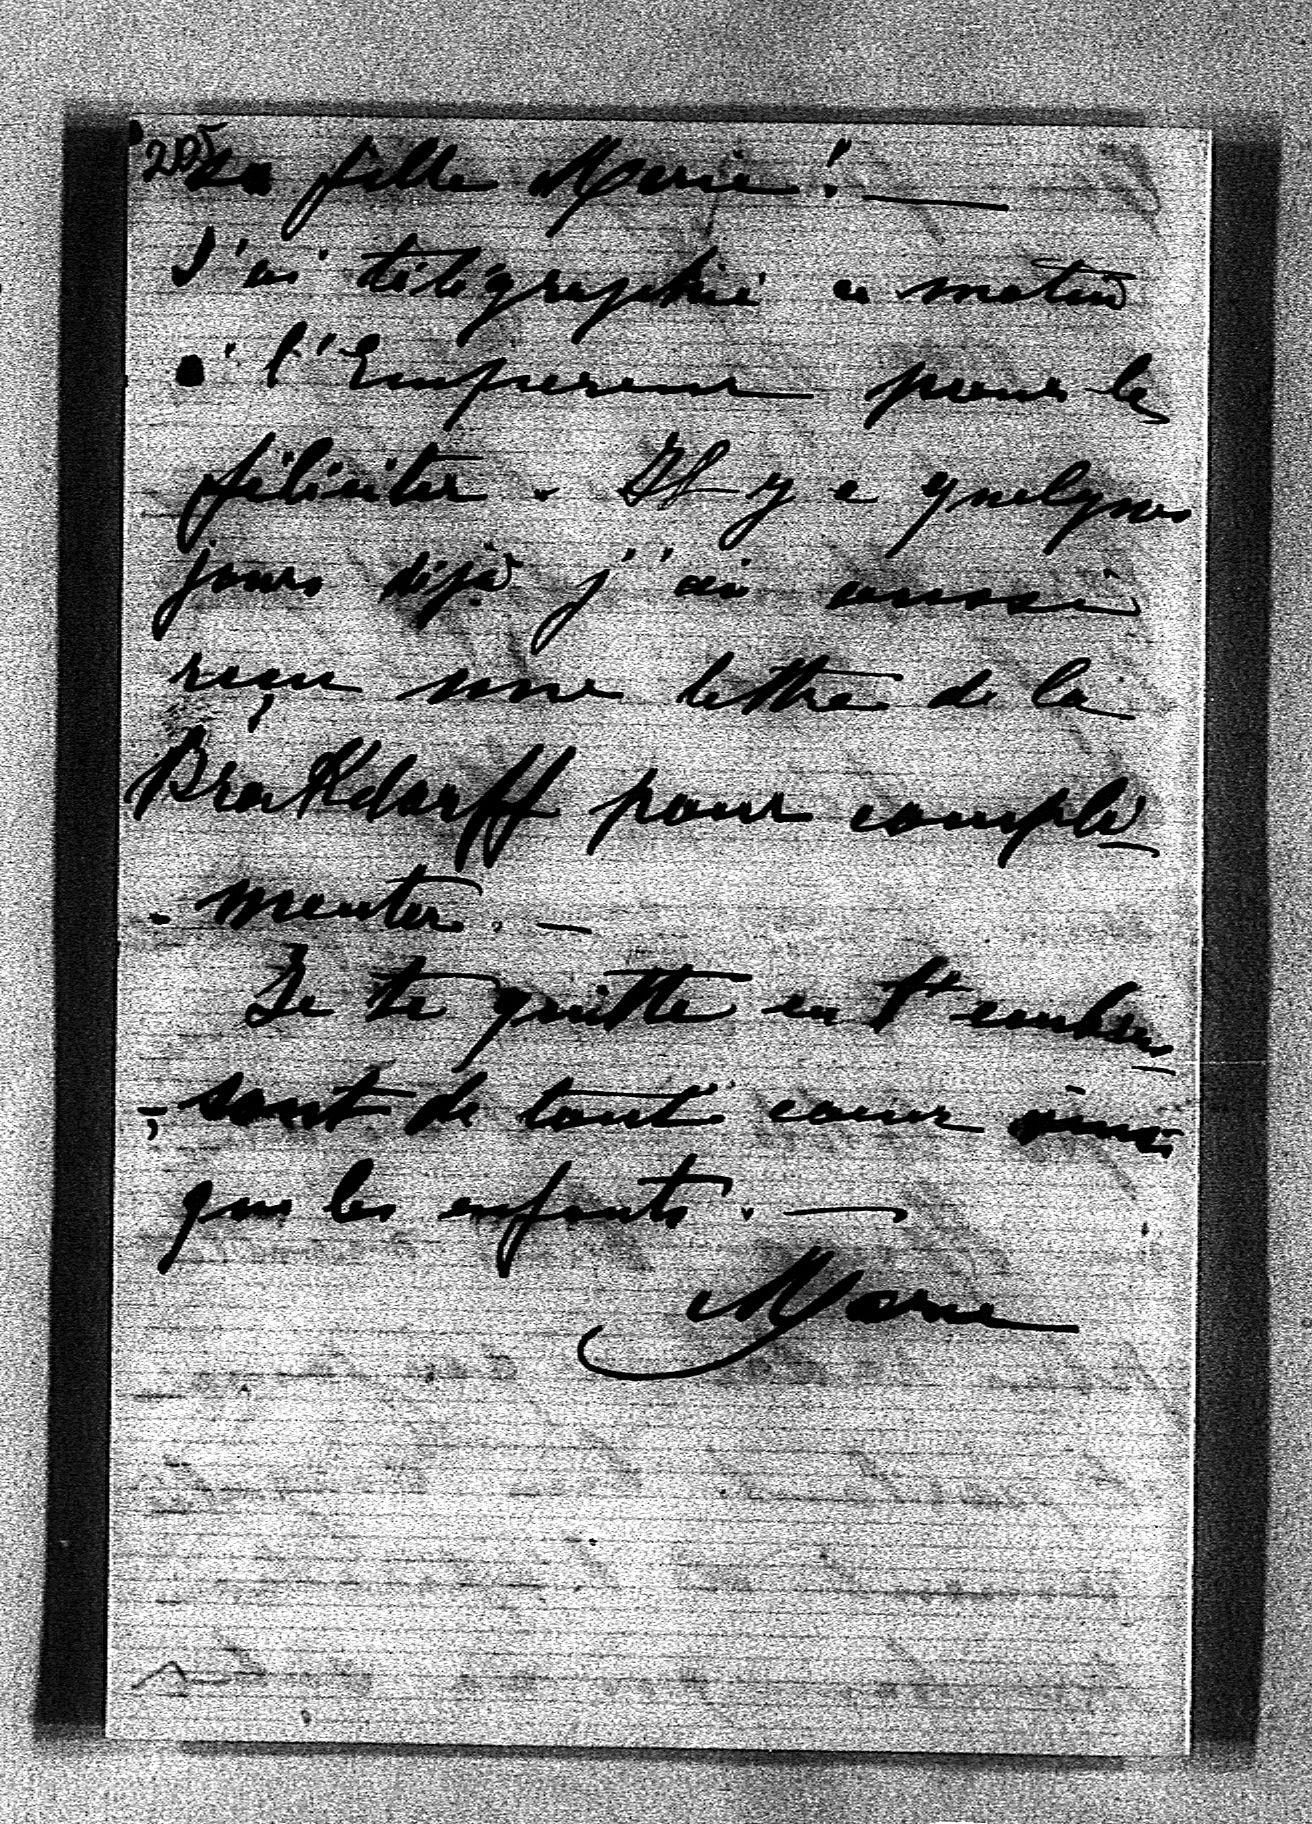 205
sa fille Marie! —
J'ai télégraphié ce matin
à l'Empereur pour le
féliciter. Il y a quelques
jours déjà j'ai aussi
reçu une lettre de la
Brockdorff pour compli
- menter. —
Je te quitte en t'embras
- sant de tout coeur ainsi
que les enfants. —
Marie